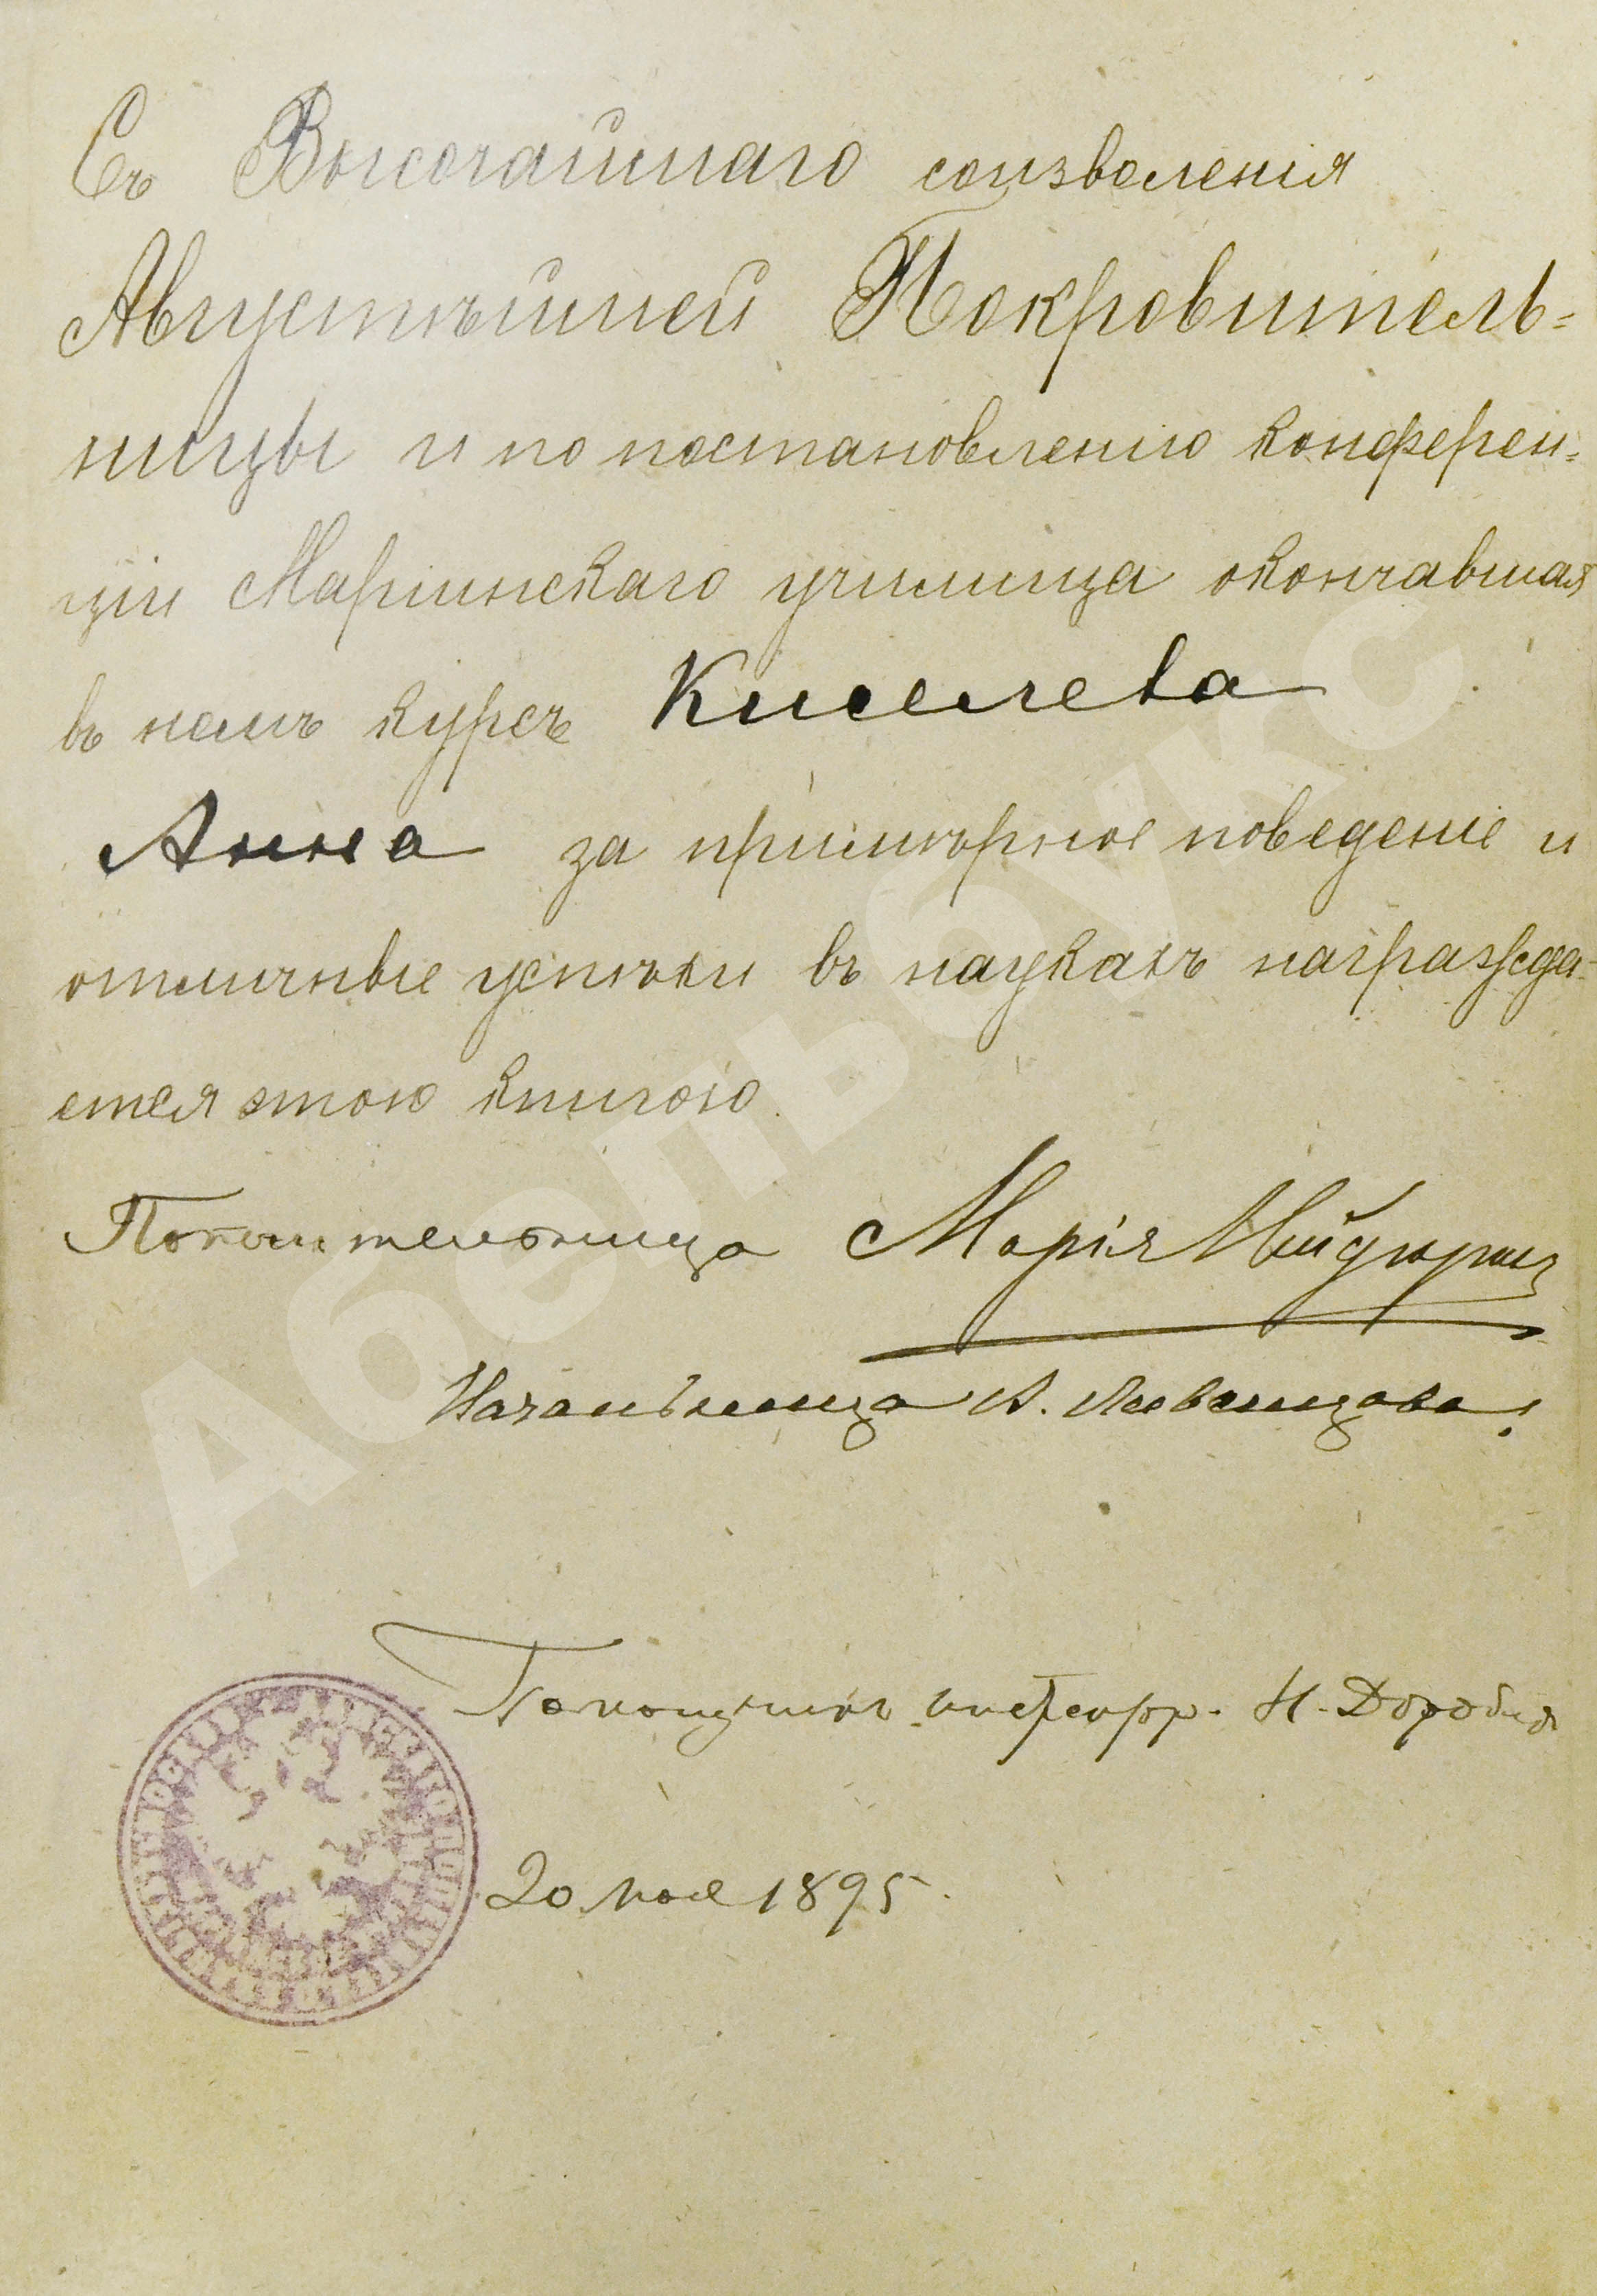 Съ Высочайшаго соизволенія
Августѣйшей Покровитель=
ницы и по постановленію конферен=
ціи Маріинскаго училища окончавшая
въ немъ курсъ Киселева
Анна за примѣрное поведеніе и
отличные успѣхи въ наукахъ награжда-
ется этою книгою.
Попечительница Марія
Начальница А. Ливенцова.
Помощникъ Н.
20 мая 1895.
Абельбукс